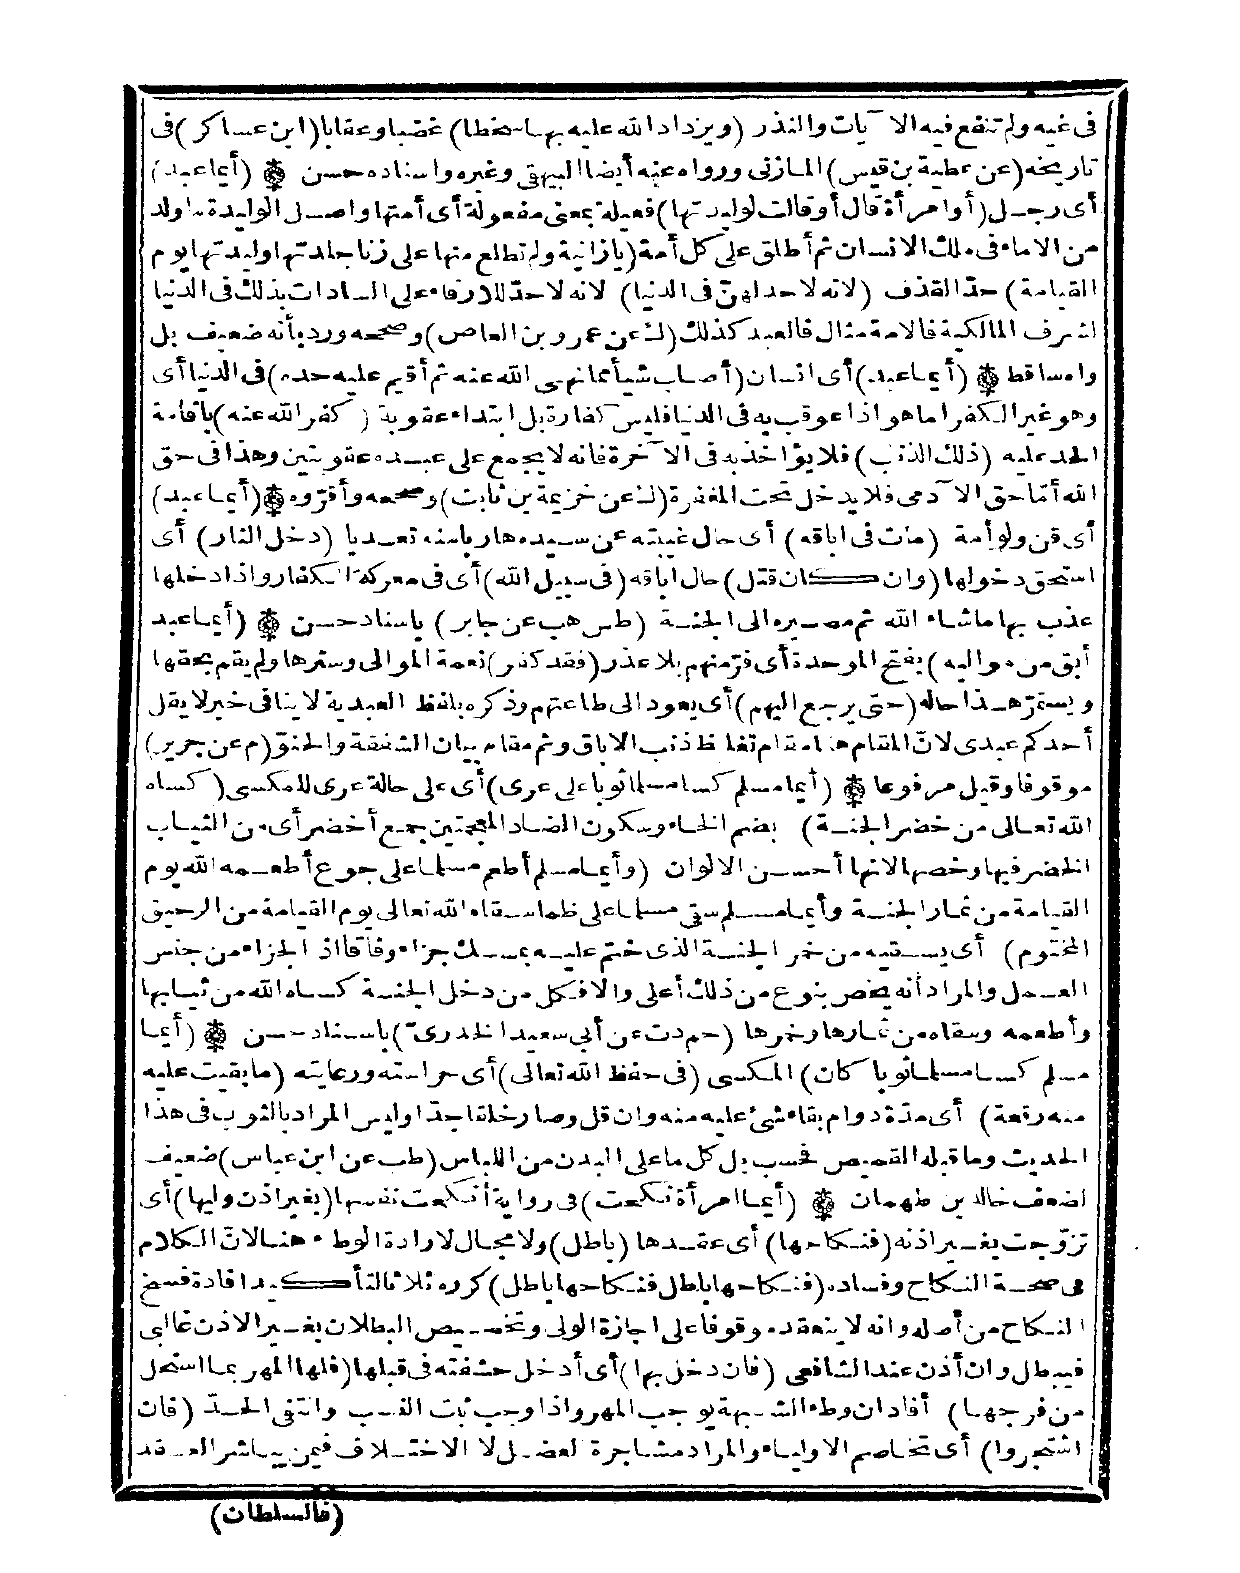 فى غيه ولم تنفع فيه الآيات والنذر (ويزداد الله عليه بها سخطا) غضبا وعقابا (ابن عساكر) فى
تاريخه (عن عطية بن قيس) المازنى ورواه عنه أيضا البيهقى وغيره واسناده حسن ۞ (أيما عبد)
أى رجل (أو امرأة قال أو قالت لوليدتها) فعيلة بمعنى مفعولة أى أمتها وأصل الوليدة ما ولد
من الاماء فى ملك الانسان ثم أطلق على كل أمة (يازانية ولم تطلع منها على زنا جلدتها وليدتها يوم
القيامة) حد القذف (لانه لاحد لهنّ فى الدنيا) لانه لا حدّ للارقاء على السادات بذلك فى الدنيا
لشرف المالكية فالامة مثال فالعبد كذلك (ك عن عمرو بن العاص) وصححه ورد بأنه ضعيف بل
واه ساقط ۞ (أيما عبد) أى انسان (أصاب شيأ مما نهى الله عنه ثم أقيم عليه حده) فى الدنيا أى
وهو غير الكفر اما هو اذا عوقب به فى الدنيا فليس كفارة بل ابتداء عقوبة (كفر الله عنه) باقامة
الحد عليه (ذلك الذنب) فلا يؤاخذ به فى الآخرة فانه لا يجمع على عبده عقوبتين وهذا فى حق
الله أمّا حق الآدمى فلا يدخل تحت المغفرة (ك عن خزيمة بن ثابت) وصححه وأقرّوه ۞ (أيما عبد)
أى قن ولو أمة (مات فى اباقه) أى حال غيبته عن سيده هاربا منه تعديا (دخل النار) أى
استحق دخولها (وان كان قتل) حال اباقه (فى سبيل الله) أى فى معركة الكفار واذا دخلها
عذب بها ما شاء الله ثم مصيره الى الجنة (طس هب عن جابر) باسناد حسن ۞ (أيما عبد
أبق من مواليه) بفتح الموحدة أى فرّ منهم بلا عذر (فقد كفر) نعمة الموالى وسترها ولم يقم بحقها
ويستمرّ هذا حاله (حتى يرجع اليهم) أى يعود الى طاعتهم وذكره بلفظ العبدية لا ينافى خبر لا يقل
أحدكم عبدى لانّ المقام هنا مقام تغليظ ذنب الاباق وثم مقام بيان الشفقة والحنوّ (م عن جرير)
موقوفا وقيل مرفوعا ۞ (أيما مسلم كسا مسلما ثوبا على عرى) أى على حالة عرى للمكسى (كساه
الله تعالى من خضر الجنة) بضم الخاء وسكون الضاد المعجمتين جمع أخضر أى من الثياب
الخضر فيها وخصها لانها أحسن الالوان (وأيما مسلم أطعم مسلما على جوع أطعمه الله يوم
القيامة من ثمار الجنة وأيما مسلم سقى مسلما على ظما سقاه الله تعالى يوم القيامة من الرحيق
المختوم) أى يسقيه من خمر الجنة الذى ختم عليه بمسك جزاء وفاقا اذ الجزاء من جنس
العمل والمراد أنه يخص بنوع من ذلك أعلى والا فكل من دخل الجنة كساه الله من ثيابها
وأطعمه وسقاه من ثمارها وخمرها (حم د ت عن أبى سعيد الخدرىّ) باسناد حسن ۞ (أيما
مسلم كسا مسلما ثوبا كان) المكسى (فى حفظ الله تعالى) أى حراسته ورعايته (ما بقيت عليه
منه رقعة) أى مدّة دوام بقاء شئ عليه منه وان قل وصار خلقا جدّا وليس المراد بالثوب فى هذا
الحديث وما قبله القميص فحسب بل كل ما على البدن من اللباس (طب عن ابن عباس) ضعيف
لضعف خالد بن طهمان ۞ (أيما امرأة نكحت) فى رواية أنكحت نفسها (بغير اذن وليها) أى
تزوّجت بغير اذنه (فنكاحها) أى عقدها (باطل) ولا مجال لارادة الوطء هنا لانّ الكلام
فى صحة النكاح وفساده (فنكاحها باطل فنكاحها باطل) كرره ثلاثا لتأكيد افادة فسخ
النكاح من أصله وانه لا ينعقد موقوفا على اجازة الولى وتخصيص البطلان بغير الاذن غالبى
فيبطل وان أذن عند الشافعى (فان دخل بها) أى أدخل حشفته فى قبلها (فلها المهر بما استحل
من فرجها) أفاد ان وطء الشبهة يوجب المهر واذا وجب ثبت النسب وانتفى الحدّ (فان
اشتجروا) أى تخاصم الاولياء والمراد مشاجرة لعضل لا الاختلاف فيمن يباشر العقد
(فالسلطان)